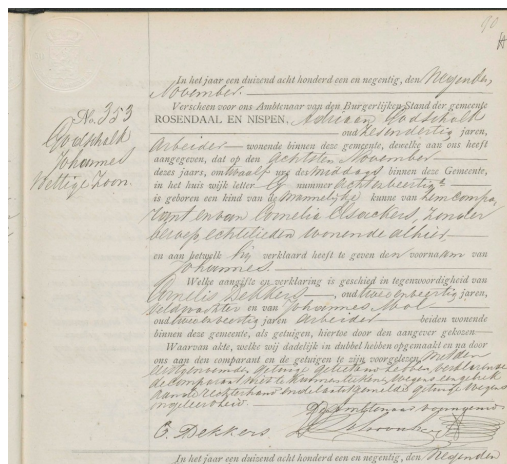 90
In het jaar een duizend acht honderd een en negentig, den Negenden
November.
Verscheen voor ons Ambtenaar van den Burgerlijken Stand der gemeente
No. 353
ROSENDAAL EN NISPEN, Adriaan Godschalk
Godschalk
oud zesendertig jaren,
Johannes
Arbeider wonende binnen deze gemeente, dewelke aan ons heeft
Wettige Zoon.
aangegeven, dat op den achtsten November
dezes jaars, om twaalf ure des middags binnen deze Gemeente,
in het huis wijk letter G nummer achtenveertig
is geboren een kind van de Mannelijke kunne van hem compa
rant en van Cornelia Elsackers, zonder
beroep echtelieden wonende alhier
en aan hetwelk hij verklaard heeft te geven den voornaam van
Johannes
Welke aangifte en verklaring is geschied in tegenwoordigheid van
Cornelis Dekkers oud tweeenveertig jaren,
veldwachter en van Johannes Mol
oud tweeenveertig jaren Arbeider beiden wonende
binnen deze gemeente, als getuigen, hiertoe door den aangever gekozen
Waarvan akte, welke wij dadelijk in dubbel hebben opgemaakt en na door
ons aan den comparant en de getuigen te zijn voorgelezen, met den
eerstgenoemden getuige geteekend hebben, verklarende
de comparant niet te kunnen teekenen wegens ongebrek
aan de rechterhand en de laatstgemelde getuige wegens
ongeleerdheid.
De Ambtenaar voorngenoemd
C. Dekkers
In het jaar een duizend acht honderd een en negentig, den Negenden